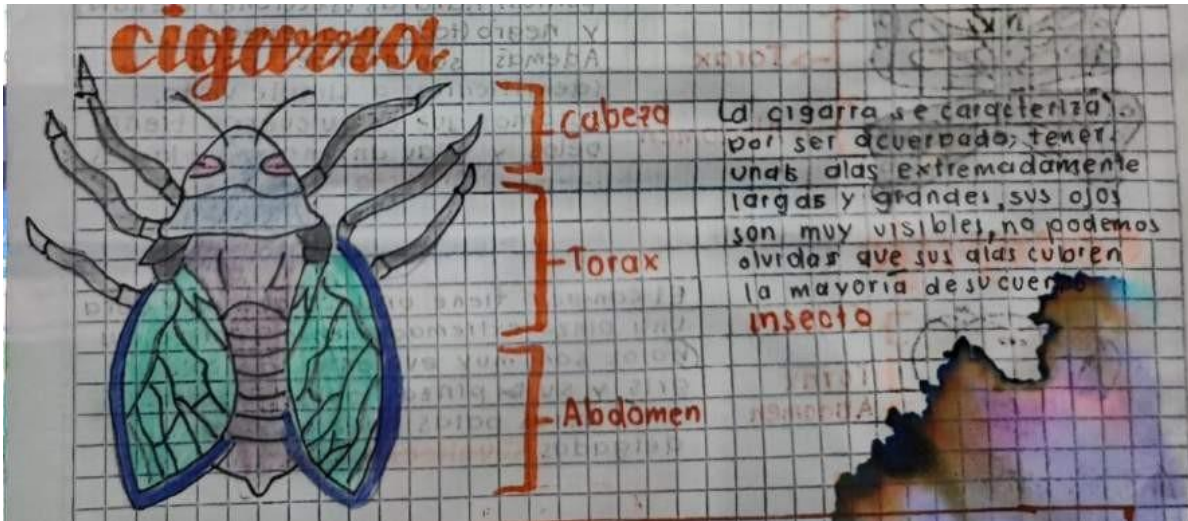 cigarra
Cabeza
Torax
Abdomen
La cigarra se caracteriza
por ser acuerpado, tener
unas alas extremadamente
largas y grandes, sus ojos
son muy visibles, no podemos
olvidar que sus alas cubren
la mayoria de su cuerpo
insecto